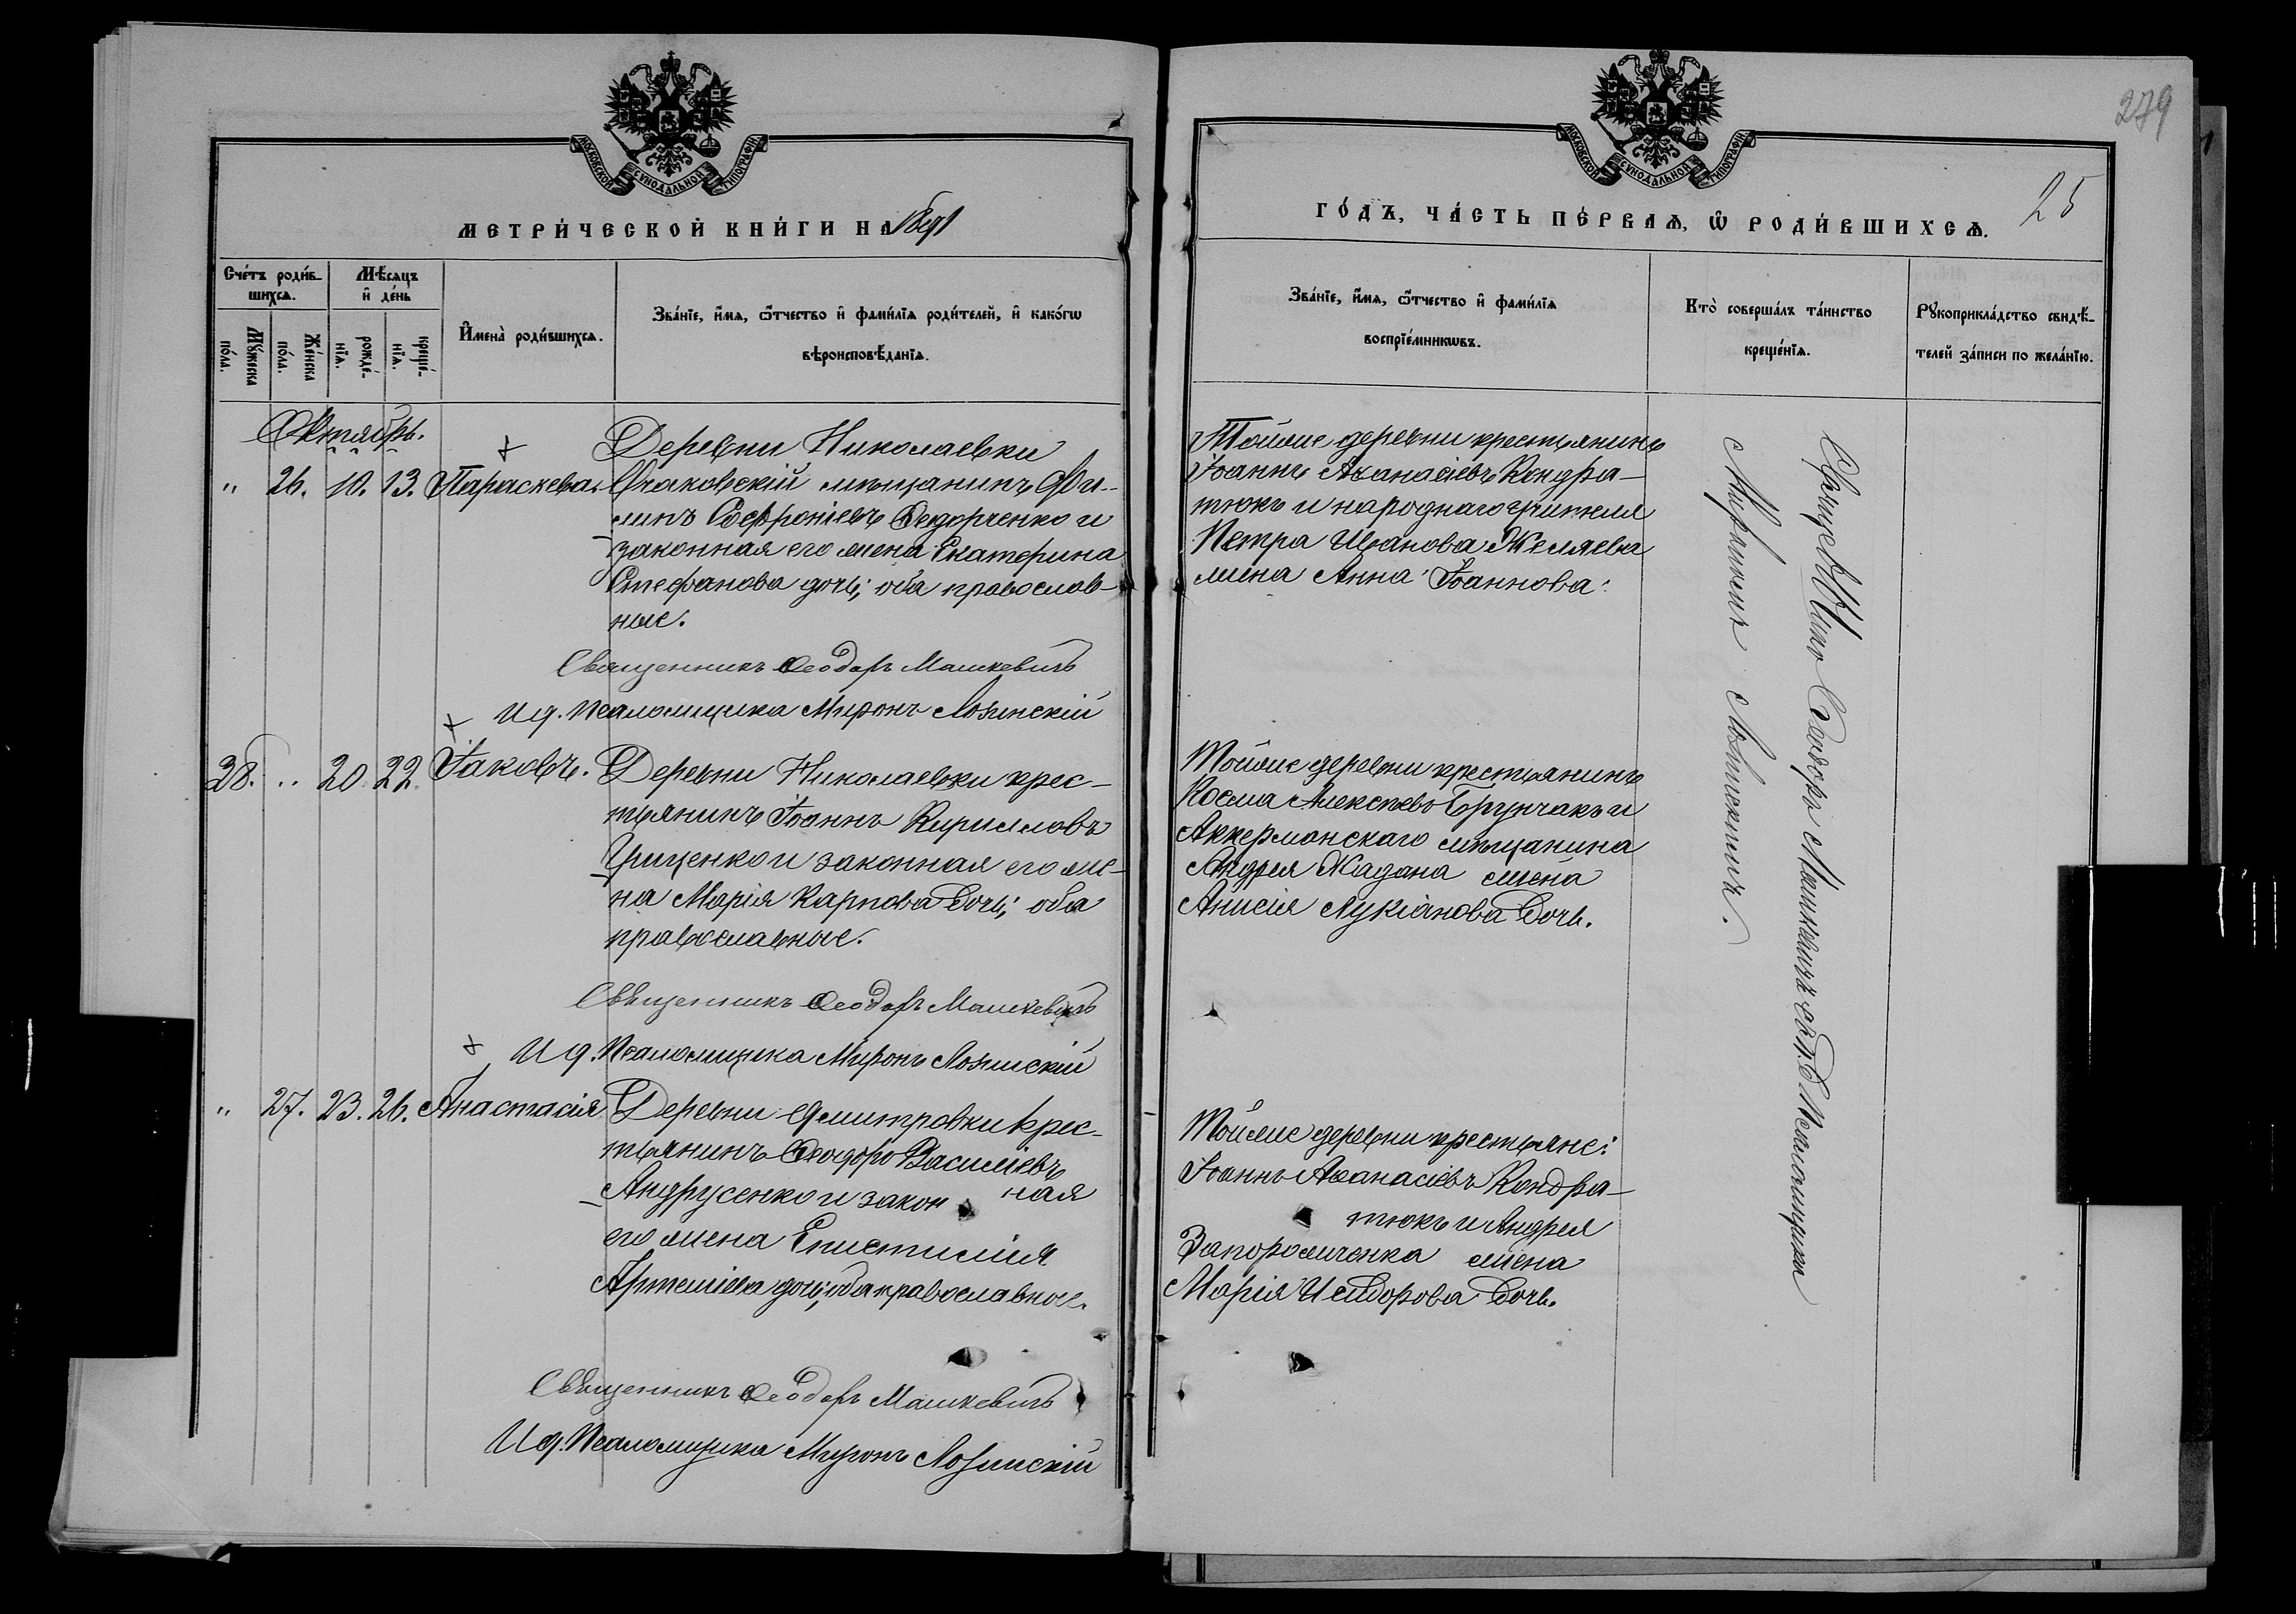 МОСКОВСКОЙ СѴНОДАЛЬНОЙ ТИПОГРАФІИ
МЕТРИ́ЧЕСКОЙ КНИ́ГИ НА 1891
Сче́тъ роди́в-
шихсѧ.
Мѣ́сѧцъ
и҆ де́нь
Мꙋ́жеска
по́ла.
Же́нска
по́ла.
рожде́-
нїѧ.
креще́-
нїѧ.
И҆мена̀ роди́вшихсѧ.
Зва́нїе, и҆́мѧ, ѻ҆́тчество и҆ фами́лїѧ роди́телей, и҆ како́гѡ
вѣроисповѣ́данїѧ.
Октябрь.
" 26. 10. 13. Параскева.
Деревни Николаевки
Очаковскій мѣщанинъ Фи-
липъ Софроніевъ Федорченко и
законная его жена Екатерина
Стефанова дочь; оба православ-
ные.
Священникъ Ѳеодоръ Машкевичъ
И д. Псаломщика Миронъ Лозинскій
38. " 20 22. Іаковъ.
Деревни Николаевки крес-
тьянинъ Іоаннъ Кирилловъ
Грищенко и законная его же-
на Марія Карпова дочь; оба
православные.
Священникъ Ѳеодоръ Машкевичъ
И д. Псаломщика Миронъ Лозинскій
" 27. 23. 26. Анастасія
Деревни Дмитровки крес-
тьянинъ Ѳеодоръ Василіевъ
Андрусенко и закон ная
его жена Епистимія
Артеміева дочь; оба православные.
Священникъ Ѳеодоръ Машкевичъ
И д. Псаломщика Миронъ Лозинскій
279
МОСКОВСКОЙ СѴНОДАЛЬНОЙ ТИПОГРАФІИ
ГО́ДЪ, ЧА́СТЬ ПЕ́РВАѦ, Ѡ҆ РОДИ́ВШИХСѦ.
25
Зва́нїе, и҆́мѧ, ѻ҆́тчество и҆ фами́лїѧ
воспрїе́мникѡвъ.
Кто̀ соверша́лъ та́инство
креще́нїѧ.
Рꙋкоприкла́дство свидѣ́-
телей за́писи по жела́нїю.
Тойже деревни крестьянинъ
Іоаннъ Аѳанасіевъ Кондра-
тюкъ и народнаго учителя
Петра Иванова Желяева
жена Анна Іоаннова.
Тойже деревни крестьянинъ
Косма Алексѣевъ Брунчакъ и
Аккерманскаго мѣщанина
Андрея Жадана жена
Анисія Лукіанова дочь.
Тойже деревни крестьяне:
Іоаннъ Аѳанасіевъ Кондра-
тюкъ и Андрея
Запорожченка жена
Марія Исидорова дочь.
Ѳеодоръ Машкевичъ съ и. д. Псаломщика
Мирономъ Лозинскимъ.